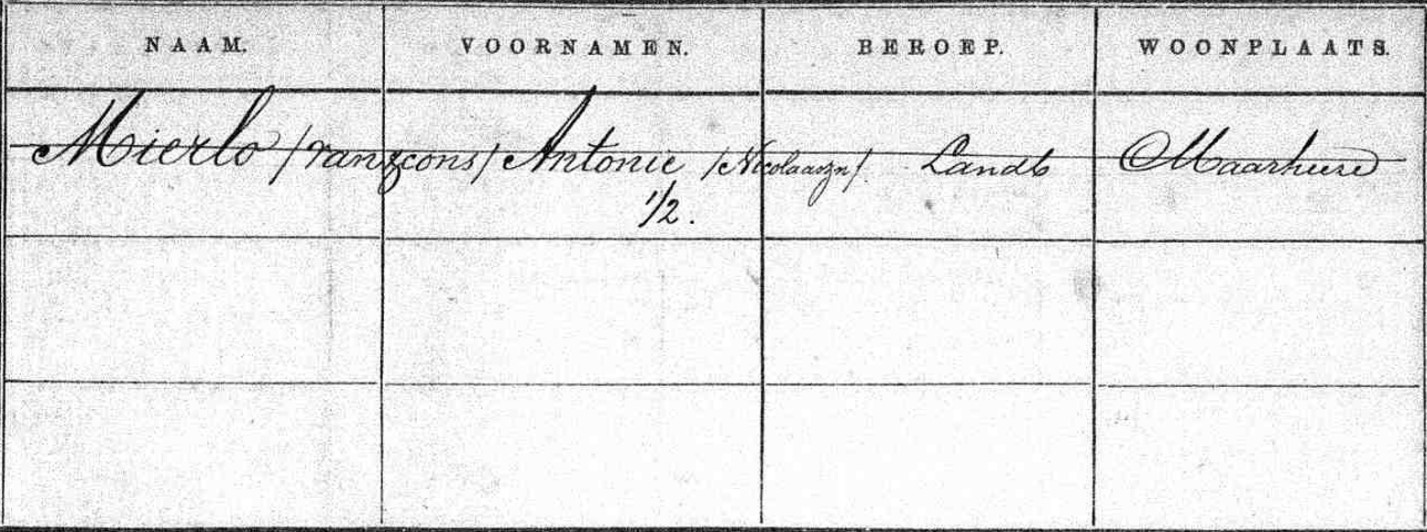 NAAM. VOORNAMEN. BEROEP. WOONPLAATS.
Mierlo /van &cons/ Antonie /Nicolaaszn/. Landb Maarheese
1/2.